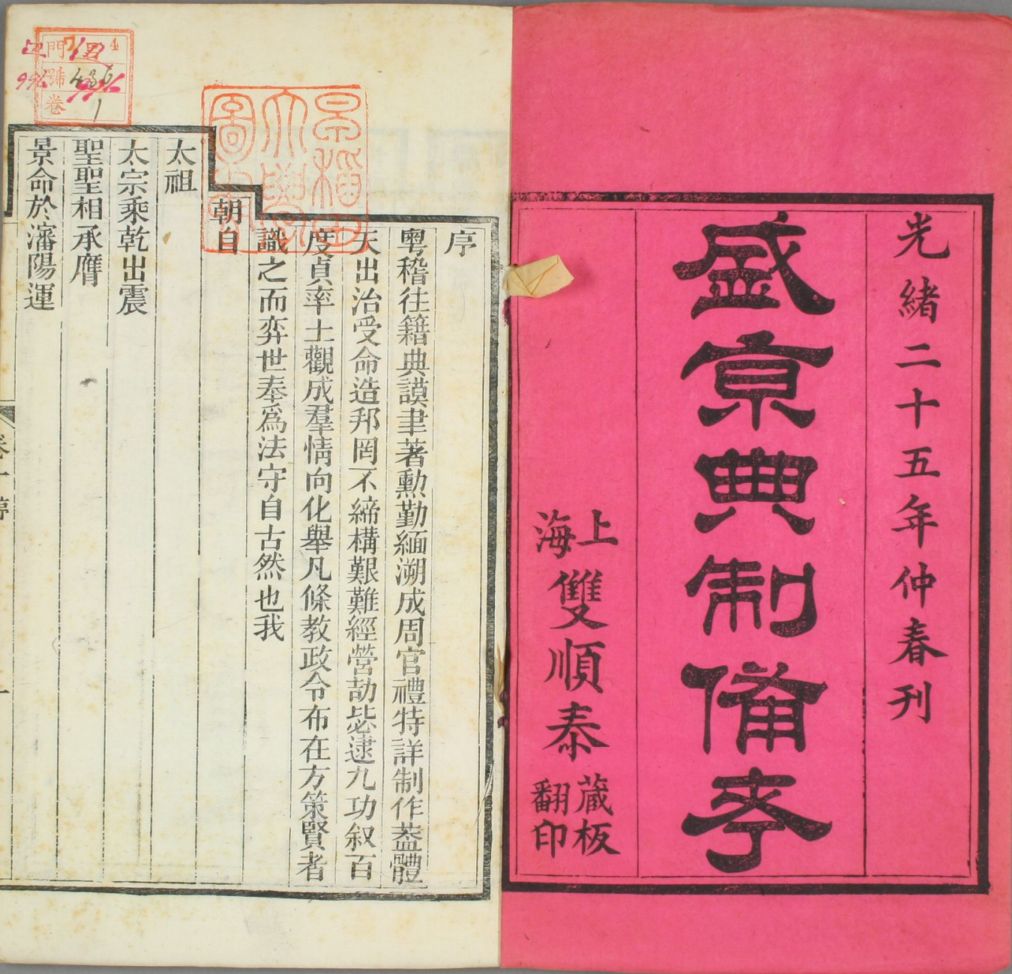 光緒二十五年仲春刊
盛京典制備考
上海
雙順泰
藏板
翻印
序
粵稽往籍典謨聿著勲勤緬溯成周官禮特詳制作葢體
天出治受命造邦罔不締構艱難經營劼毖逮九功叙百
度貞率土觀成羣情向化舉凡條教政令布在方策賢者
識之而弈世奉為法守自古然也我
朝自
太祖
太宗乘乾出震
聖聖相承膺
景命於瀋陽運
門
號
卷
1